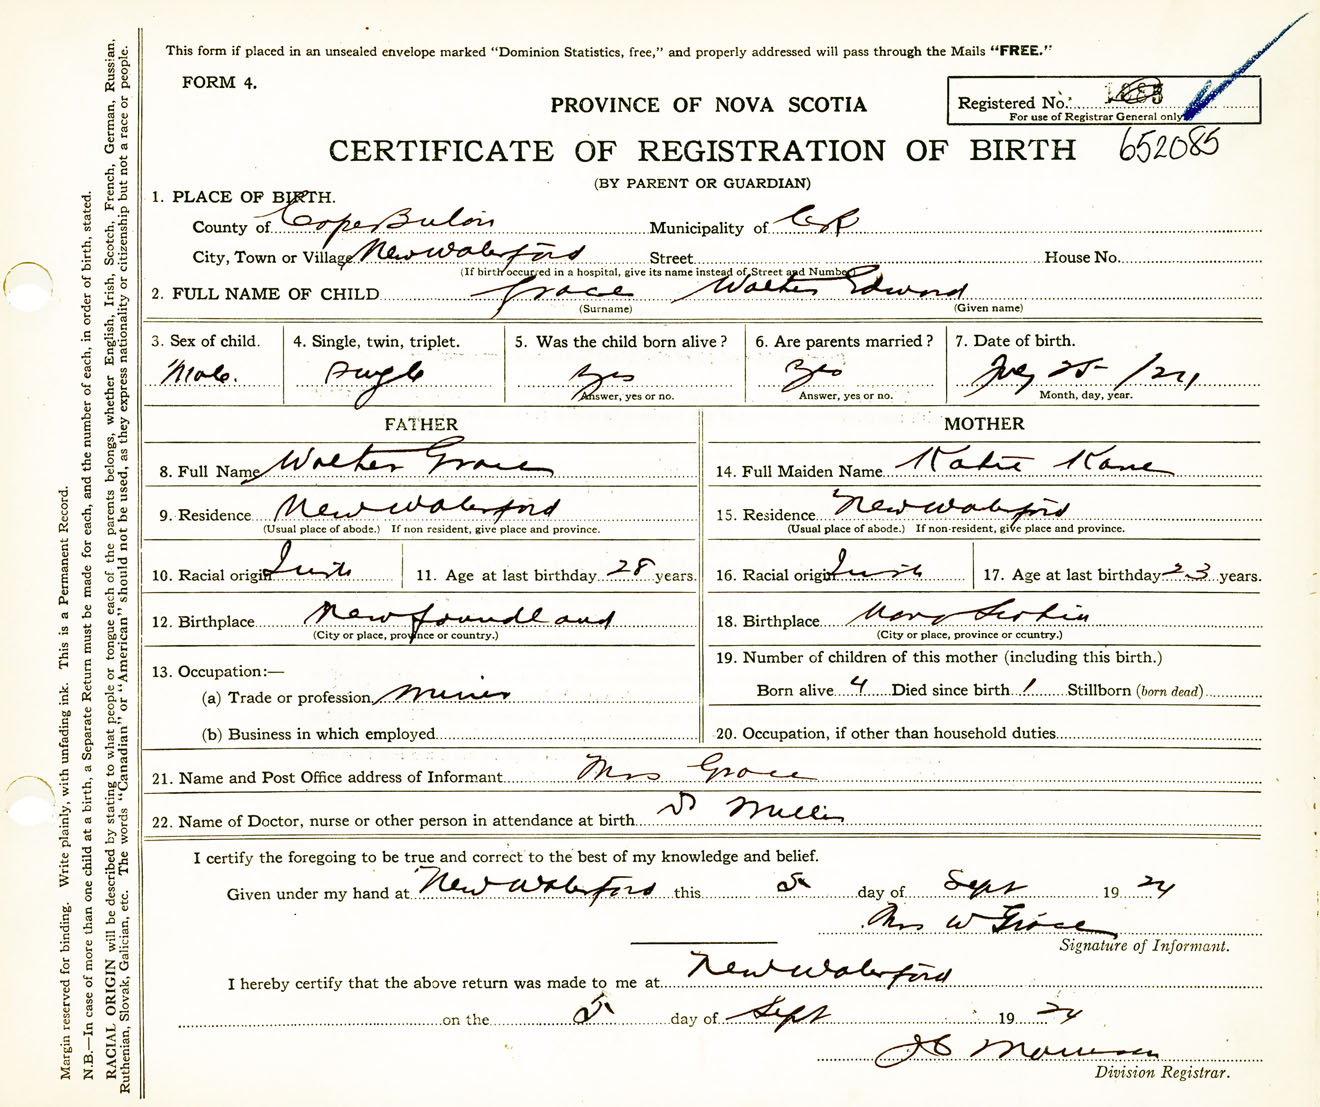 This form if placed in an unsealed envelope marked “Dominion Statistics, free,” and properly addressed will pass through the Mails “FREE.”
FORM 4.
Registered No.
For use of Registrar General only
PROVINCE OF NOVA SCOTIA
CERTIFICATE OF REGISTRATION OF BIRTH 652085
(BY PARENT OR GUARDIAN)
1. PLACE OF BIRTH.
County of Cape Breton Municipality of C B
City, Town or Village New Waterford Street House No.
(If birth occurred in a hospital, give its name instead of Street and Number)
2. FULL NAME OF CHILD Grace Walter Edward
(Surname) (Given name)
3. Sex of child. 4. Single, twin, triplet. 5. Was the child born alive? 6. Are parents married? 7. Date of birth.
Male. Single yes Yes 25 /24
Answer, yes or no. Answer, yes or no. Month, day, year.
FATHER MOTHER
8. Full Name Walter Grace 14. Full Maiden Name Katie Kane
9. Residence New Waterford 15. Residence New Waterford
(Usual place of abode.) If non resident, give place and province. (Usual place of abode.) If non-resident, give place and province.
10. Racial origin Irish 11. Age at last birthday 28 years. 16. Racial origin Irish 17. Age at last birthday 23 years.
12. Birthplace Newfoundland 18. Birthplace Nova Scotia
(City or place, province or country.) (City or place, province or country.)
13. Occupation:— 19. Number of children of this mother (including this birth.)
(a) Trade or profession miner Born alive 4 Died since birth 1 Stillborn (born dead)
(b) Business in which employed 20. Occupation, if other than household duties
21. Name and Post Office address of Informant Mrs Grace
22. Name of Doctor, nurse or other person in attendance at birth Dr
I certify the foregoing to be true and correct to the best of my knowledge and belief.
Given under my hand at New Waterford this 5 day of Sept 19 24
Mrs W Grace
Signature of Informant.
I hereby certify that the above return was made to me at New Waterford
on the 5 day of Sept 19 24
Division Registrar.
Margin reserved for binding. Write plainly, with unfading ink. This is a Permanent Record.
N.B.—In case of more than one child at a birth, a Separate Return must be made for each, and the number of each, in order of birth, stated.
RACIAL ORIGIN will be described by stating to what people or tongue each of the parents belongs, whether English, Irish, Scotch, French, German, Russian,
Ruthenian, Slovak, Galician, etc. The words “Canadian” or “American” should not be used, as they express nationality or citizenship but not a race or people.